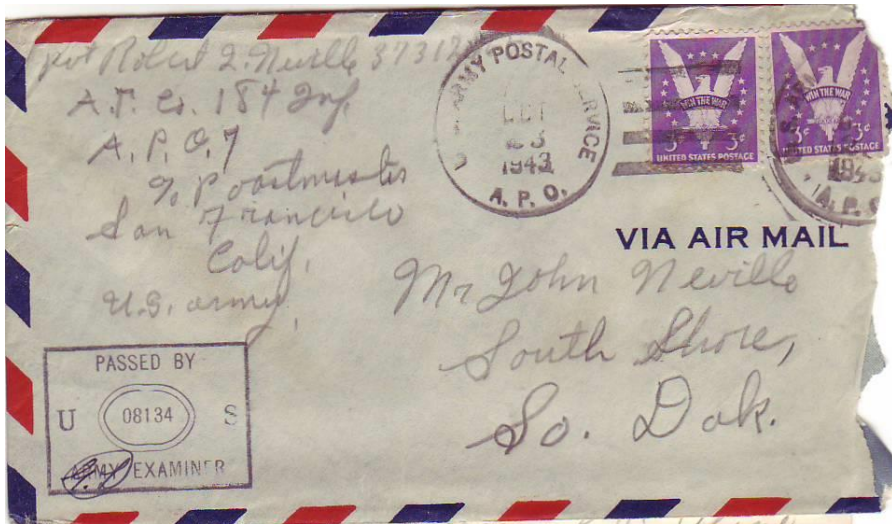 Pvt Robert L. Neville 37312
A.T. Co. 184 Inf.
A.P.O. 7
c/o Poastmaster
San Francisco
Calif.
U.S. army
U.S. ARMY POSTAL SERVICE
OCT
23
1943
A. P. O.
WIN THE WAR
3¢ 3¢
UNITED STATES POSTAGE
WIN THE WAR
3¢ 3¢
UNITED STATES POSTAGE
1943
A. P. O.
VIA AIR MAIL
Mr John Neville
South Shore,
So. Dak.
PASSED BY
U 08134 S
ARMY EXAMINER